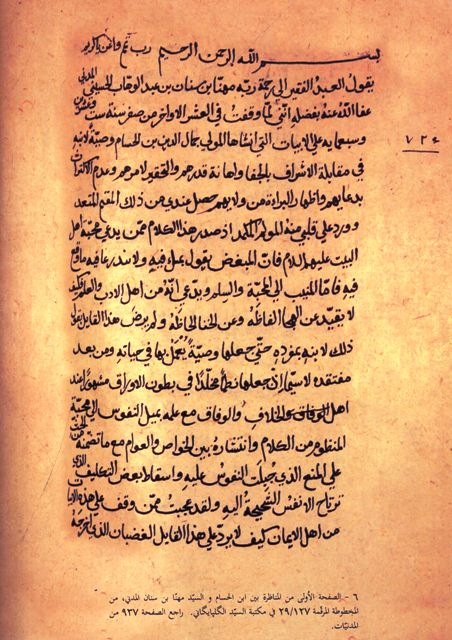 بسم الله الرحمن الرحيم رب تمم واعن يا كريم
يقول العبد الفقير الى رحمة ربه مهنا بن سنان بن عبد الوهاب الحسيني المدني
عفا الله عنه بفضله انني لما وقفت في العشر الاواخر من صفر سنة ست وعشرين
وسبعمايه على الابيات التي انشاها المولى جمال الدين بن الحسام وصية لابنه
٧٢٦
في مقابلة الاشراف بالجفا واهانة قدرهم والتحقير لامرهم وعدم الاكتراث
بدعايهم واظهار البراءة من ولايهم حصل عندي من ذلك المقعد
وورد على قلبي منه المولم المكمد اذ صدر هذا الكلام ممن يدعي محبة اهل
البيت عليهم السلام فان المبغض يقول بملء فيه ولا يندر عافيه ما وقع
فيه فاما المنتسب الى المحبة والسلم ويدعي انه من اهل الادب والعلم فكيف
لا يقيد عن الهجا الفاظه وعن الخنا الحاظه ولم يرض هذا القايل بقول
ذلك لابنه بمفرده حتى جعلها وصية يعمل بها في حياته ومن بعد
مفتقده لاسيما اذ جعلها نظما مخلدا في بطون الاوراق مشهورا عند
اهل الخلاف والوفاق مع علمه بميل النفوس الى محبة
المنظوم من الكلام وانتشاره بين الخواص والعوام مع ما تضمنه من الحث
على المنع الذي جبلت النفوس عليه واسقاط بعض التكليف الذي
ترتاح الانفس الشحيحة اليه ولقد عجبت ممن وقف على هذه الابيات
من اهل الايمان كيف لا يرد على هذا القايل الغضبان الذي اخرجه
٦ - الصفحة الأولى من المناظرة بين ابن الحسام و السيّد مهنّا بن سنان المدني، من
المخطوطة المرقّمة ٢٩/١٢٧ في مكتبة السيّد الگلپايگاني. راجع الصفحة ٩٣٧ من
المدنيّات.